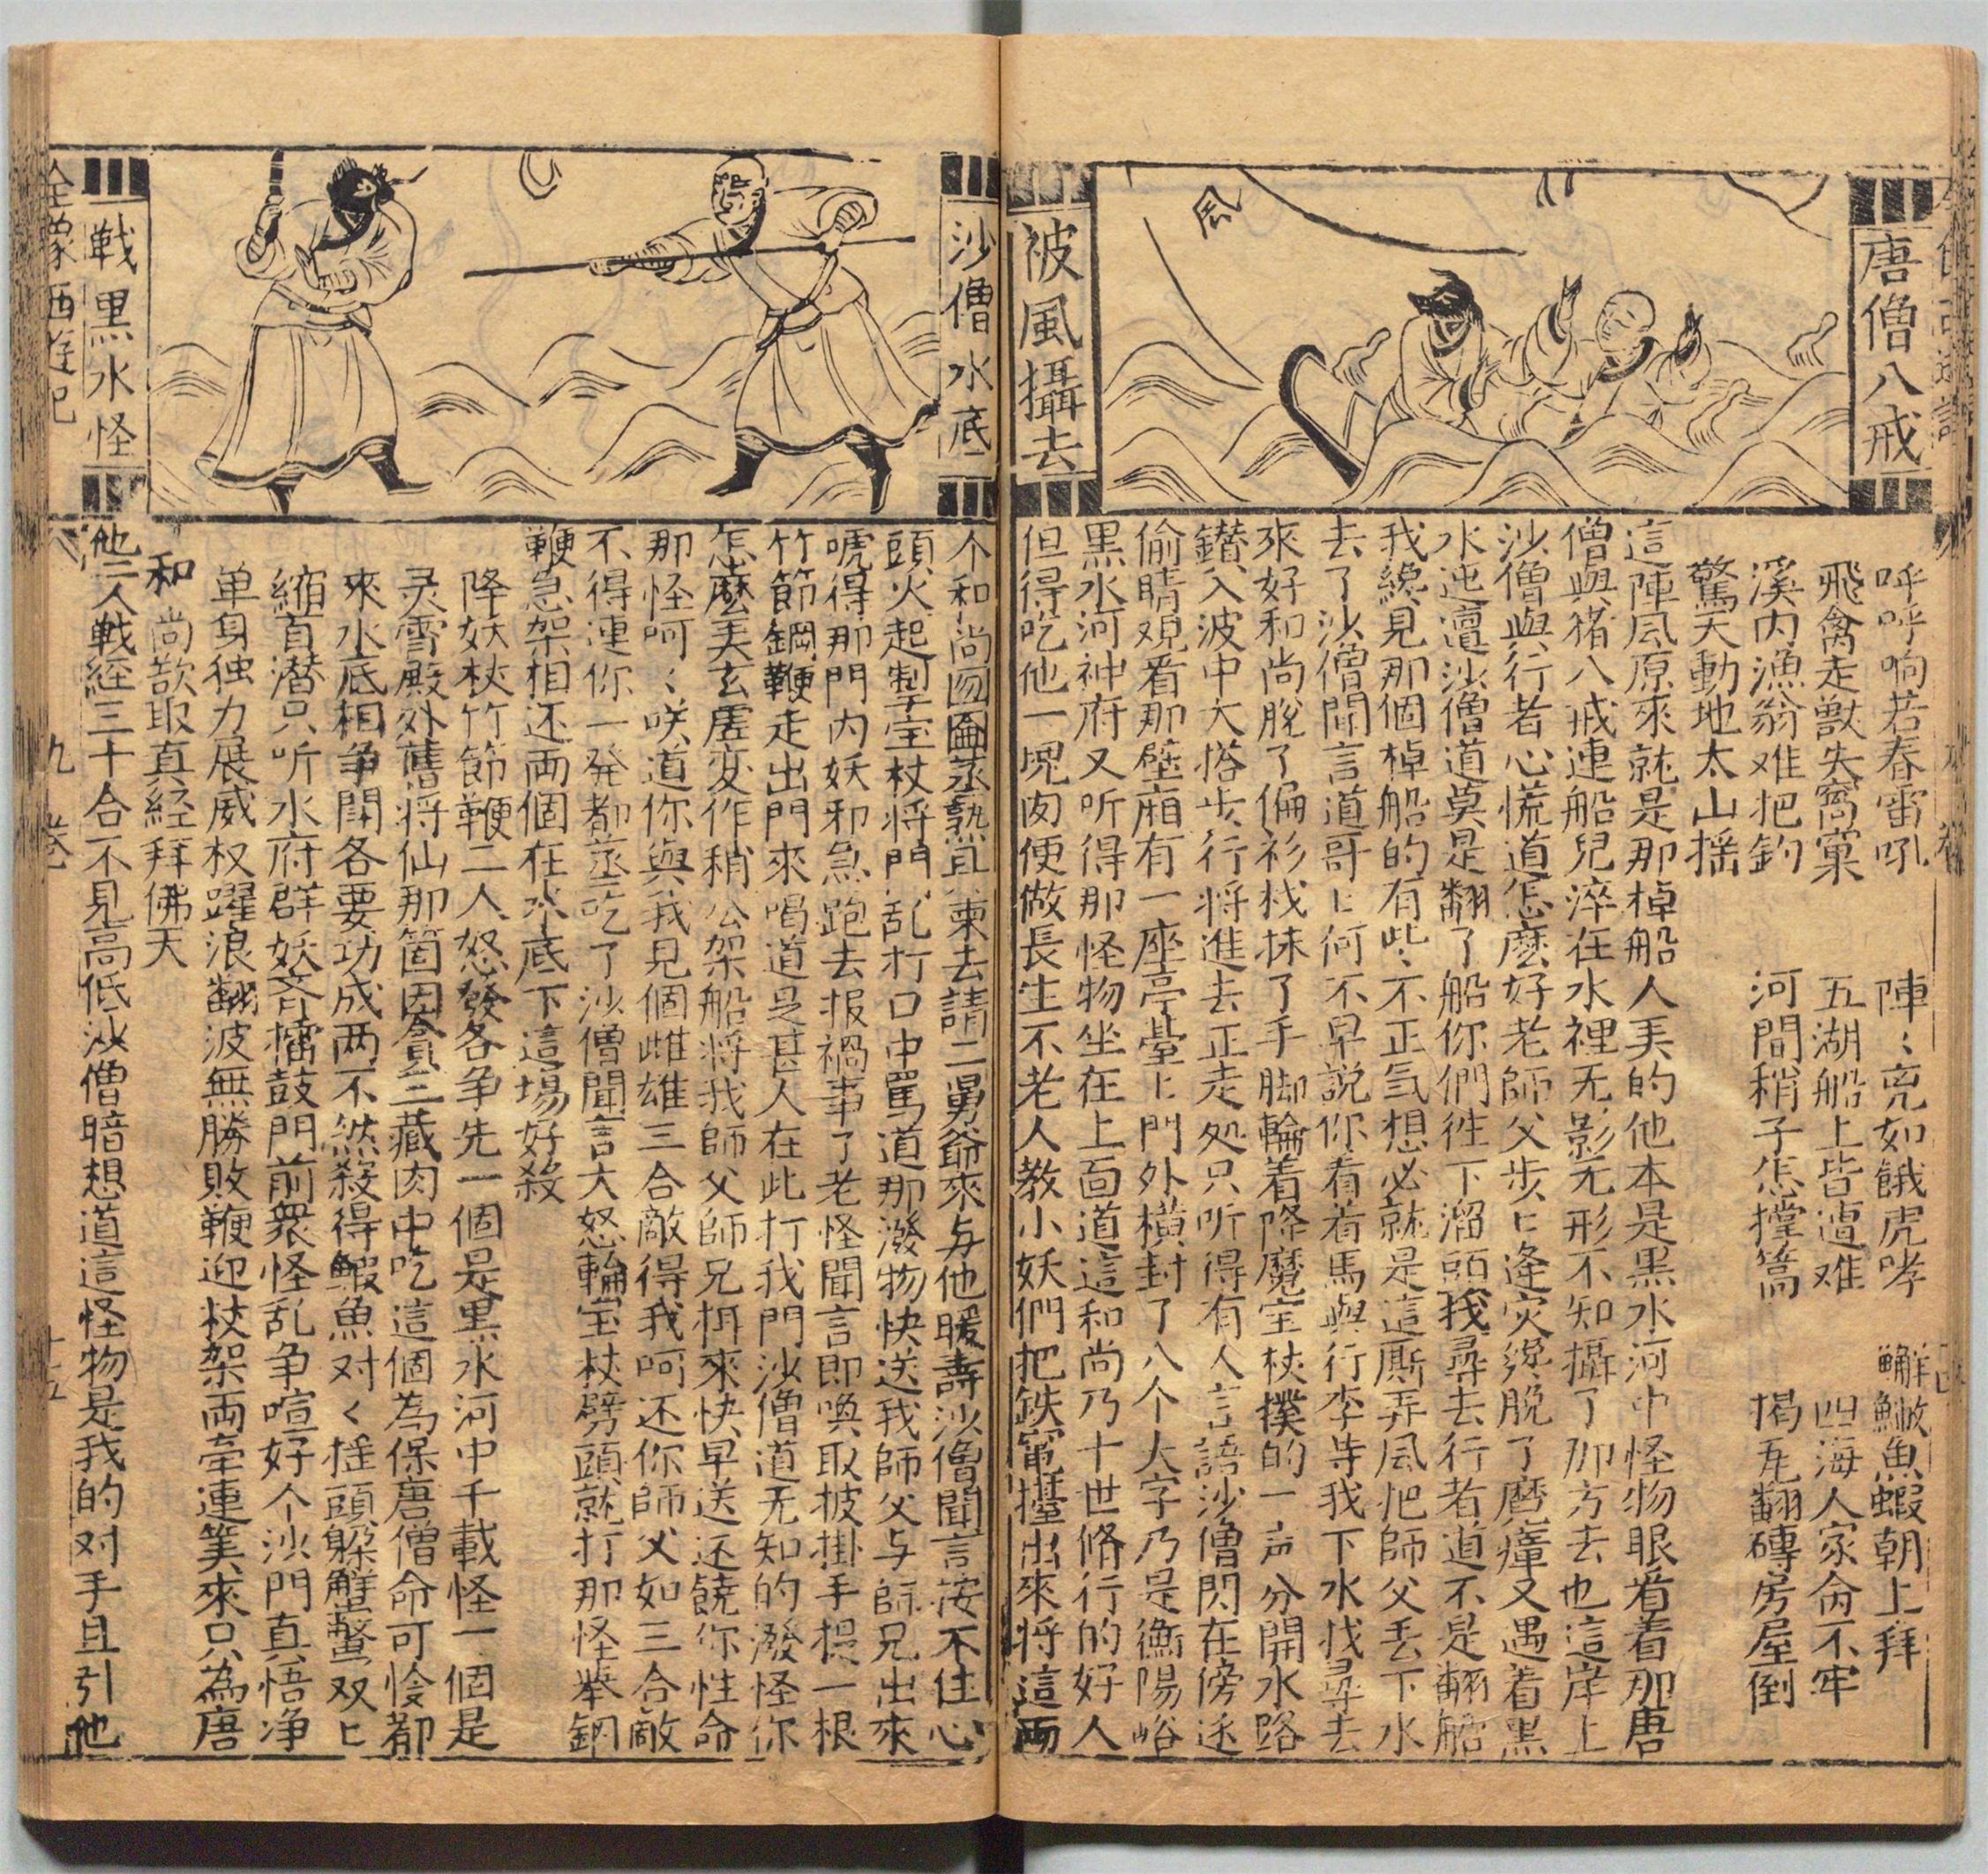 唐僧八戒
被風攝去
風
呼呼响若春雷吼 陣〻兇如餓虎哮 鱖魚蝦朝上拜
飛禽走獸失窩巢 五湖船上皆遭难 四海人家命不牢
溪内漁翁难把釣 河間稍子怎撑篙 揭瓦翻磚房屋倒
驚天動地太山摇
這陣風原來就是那棹船人弄的他本是黑水河中怪物眼看着那唐
僧與猪八戒連船兒淬在水裡无影无形不知攝了那方去也這岸上
沙僧與行者心慌道怎麽好老師父步〻逢灾纔脱了魔瘴又遇着黑
水迍邅沙僧道莫是翻了船你們往下溜頭我尋去行者道不是翻船
我纔見那個棹船的有些不正氣想必就是這厮弄風把師父丢下水
去了沙僧聞言道哥〻何不早説你看着馬與行李等我下水找尋去
來好和尚脱了偏衫找抹了手脚輪着降魔宝杖撲的一声分開水路
鑚入波中大搭步行將進去正走処只听得有人言語沙僧閃在傍迯
偷睛观看那壁廂有一座亭臺〻門外横封了八个大字乃是衡陽峪
黑水河神府又听得那怪物坐在上面道這和尚乃十世脩行的好人
但得吃他一塊肉便做長生不老人教小妖們把鉄篭擡出來将這兩
沙僧水底
戰黑水怪
个和尚囫圇蒸熟具柬去請二舅爺來与他暖壽沙僧聞言按不住心
頭火起掣宝杖将門乱打口中罵道那潑物快送我師父与師兄出來
唬得那門内妖邪急跑去报禍事了老怪聞言即喚取披掛手提一根
竹節鋼鞭走出門來喝道是甚人在此打我門沙僧道无知的潑怪你
怎麽弄玄虚变作稍公架船将我師父師兄攝來快早送还饒你性命
那怪呵〻咲道你與我見個雌雄三合敵得我呵还你師父如三合敵
不得連你一發都蒸吃了沙僧聞言大怒輪宝杖劈頭就打那怪舉鋼
鞭急架相还兩個在水底下這塲好殺
降妖杖竹節鞭二人怒發各争先一個是黑水河中千載怪一個是
灵霄殿外舊将仙那箇因貪三藏肉中吃這個為保唐僧命可怜都
來水底相争鬪各要功成两不然殺得蝦魚对〻揺頭躱蟹鱉双〻
縮首潜只听水府群妖斉擂鼓門前衆怪乱争喧好个沙門真悟净
单身独力展威权躍浪翻波無勝敗鞭迎杖架兩牵連筭來只為唐
和尚欲取真経拜佛天
他二人戰経三十合不見高低沙僧暗想道這怪物是我的对手且引他
全像西遊記
九 卷
十五